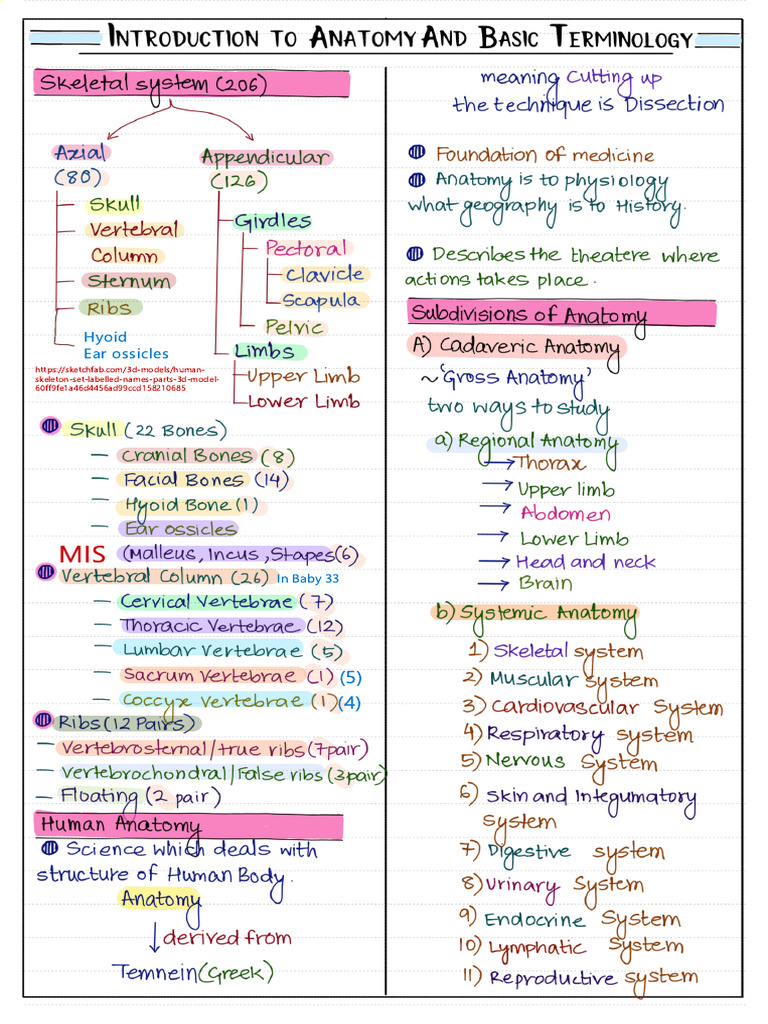 INTRODUCTION TO ANATOMY AND BASIC TERMINOLOGY
Skeletal system (206)
Axial
(80)
Skull
Vertebral
Column
Sternum
Ribs
Hyoid
Ear ossicles
Appendicular
(126)
Girdles
Pectoral
Clavicle
Scapula
Pelvic
Limbs
Upper Limb
Lower Limb
https://sketchfab.com/3d-models/human-
skeleton-set-labelled-names-parts-3d-model-
60ff9fe1a46d4456ad99ccd158210685
Skull (22 Bones)
— Cranial Bones (8)
— Facial Bones (14)
— Hyoid Bone (1)
— Ear ossicles
MIS (Malleus, Incus, Stapes(6)
Vertebral Column (26) In Baby 33
— Cervical Vertebrae (7)
— Thoracic Vertebrae (12)
— Lumbar Vertebrae (5)
— Sacrum Vertebrae (1) (5)
— Coccyx Vertebrae (1)(4)
Ribs (12 Pairs)
— Vertebrosternal/true ribs (7pair)
— Vertebrochondral/False ribs (3pair)
— Floating (2 pair)
Human Anatomy
Science which deals with
structure of Human Body.
Anatomy
↓ derived from
Temnein (Greek)
meaning Cutting up
the technique is Dissection
Foundation of medicine
Anatomy is to physiology
what geography is to History.
Describes the theatere where
actions takes place.
Subdivisions of Anatomy
A) Cadaveric Anatomy
~ 'Gross Anatomy'
two ways to study
a) Regional Anatomy
→ Thorax
→ Upper limb
→ Abdomen
→ Lower Limb
→ Head and neck
→ Brain
b) Systemic Anatomy
1) Skeletal system
2) Muscular system
3) Cardiovascular System
4) Respiratory system
5) Nervous System
6) Skin and Integumatory
System
7) Digestive system
8) Urinary System
9) Endocrine System
10) Lymphatic System
11) Reproductive system